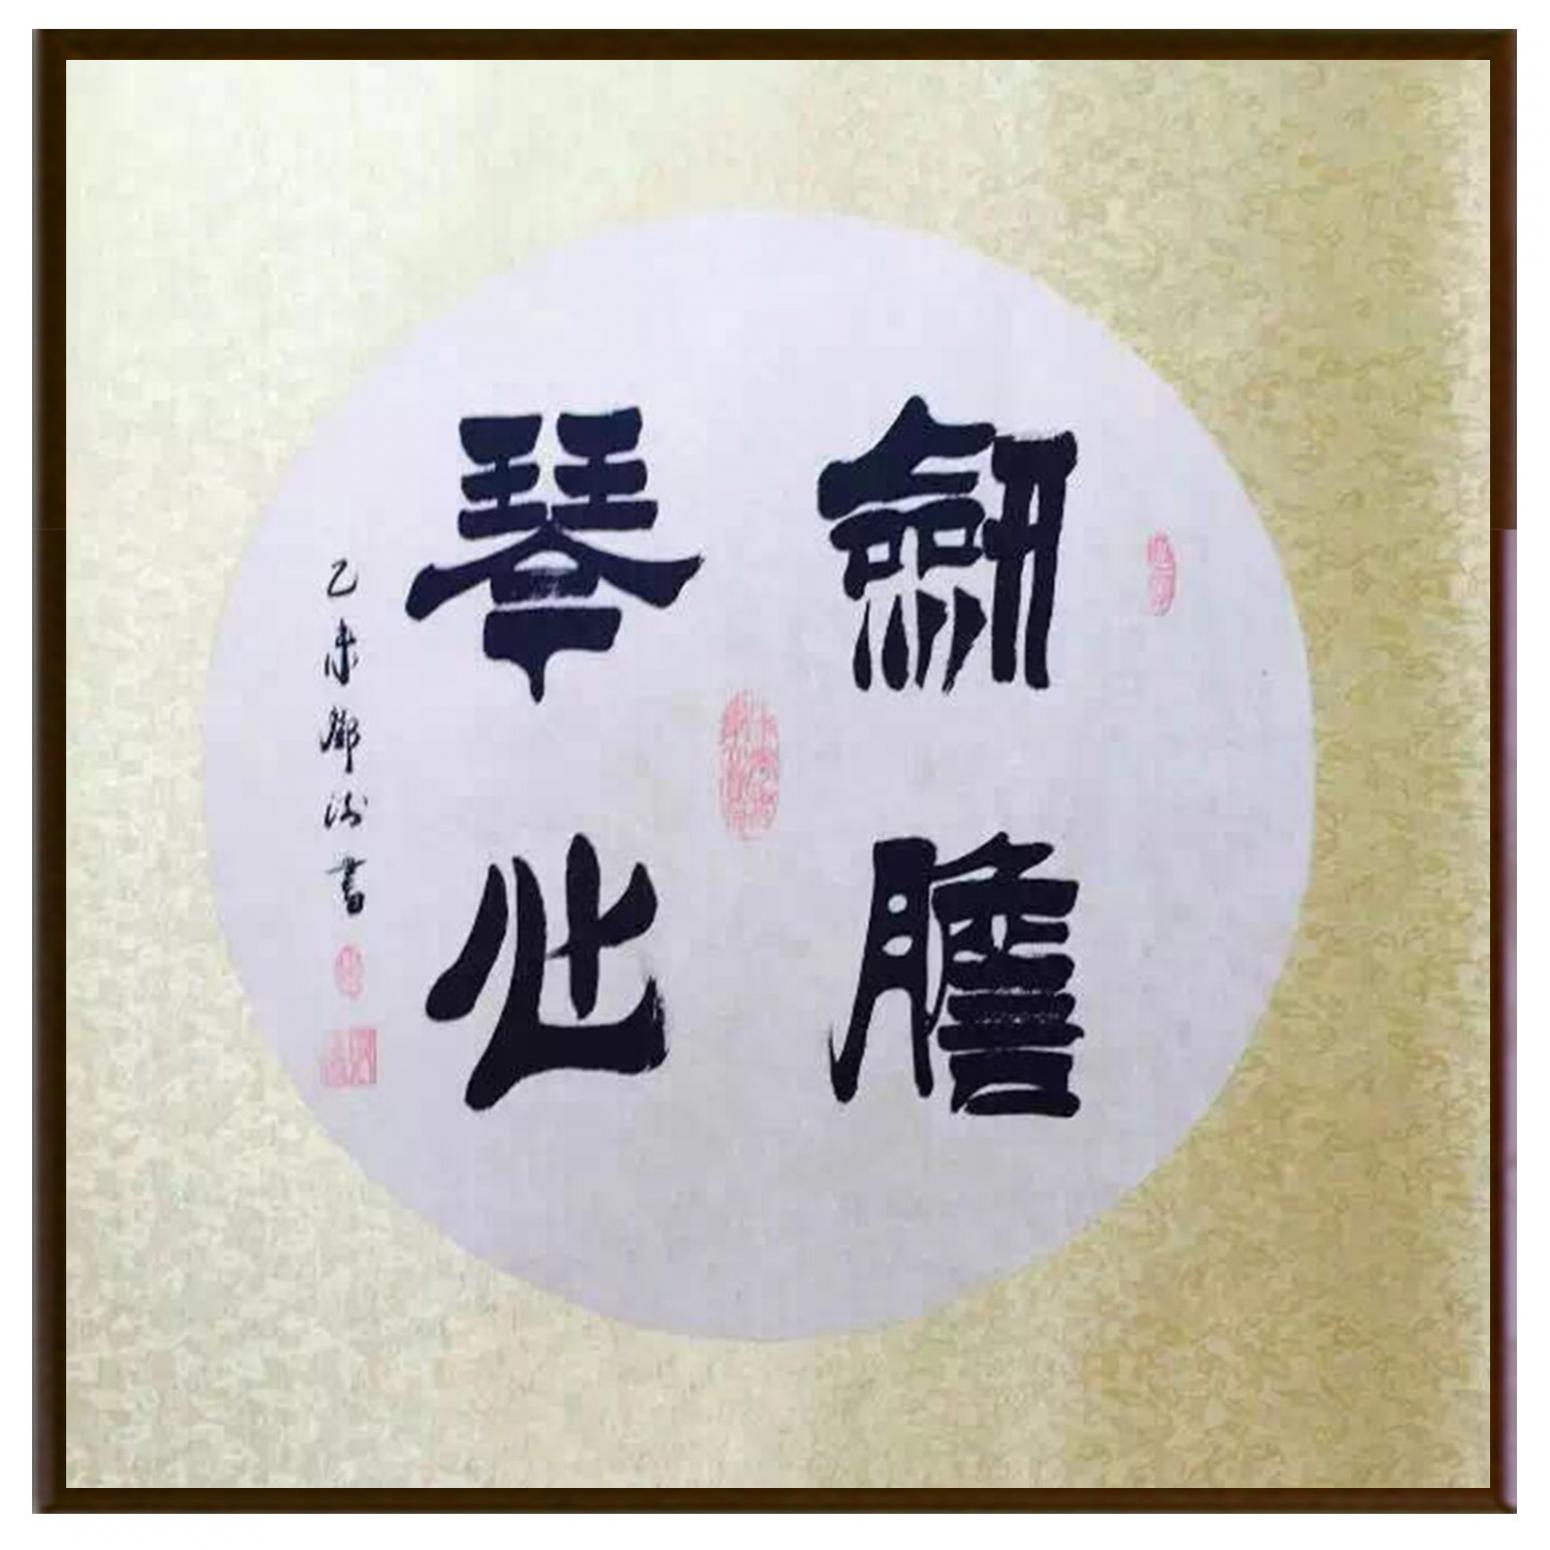 劍膽
琴心
乙未鄧書